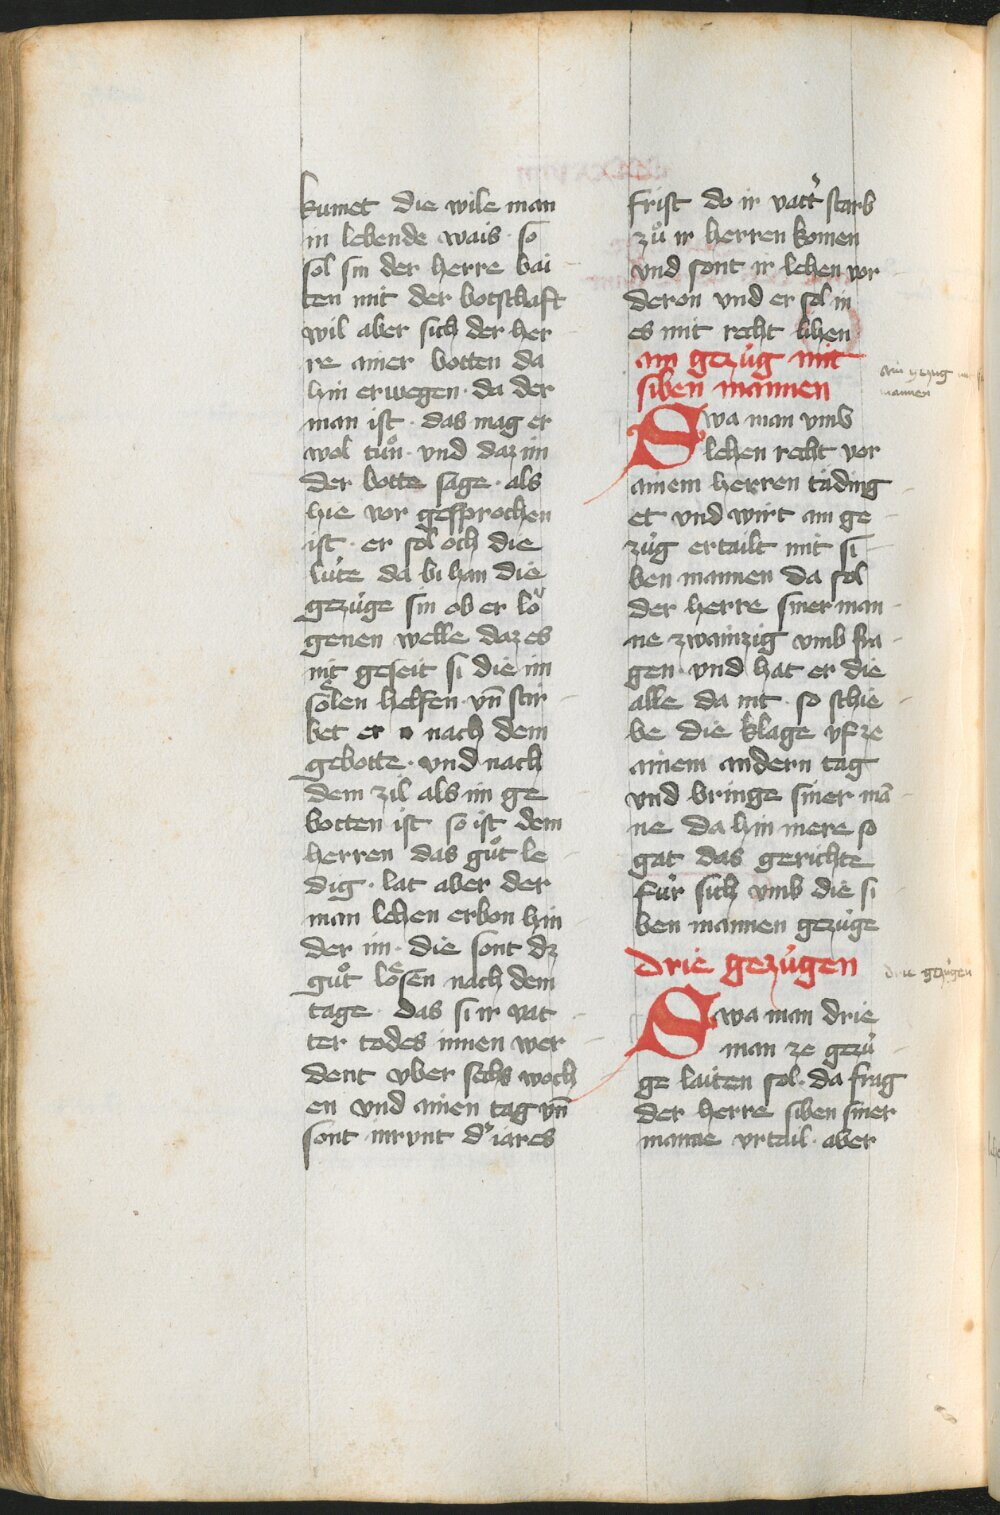 kumet die wile man
in lebende wais · so
sol sin der herre bai
ten mit der botschaft
wil aber sich der her
re ainer botten da
hin erwegen · da der
man ist · das mag er
wol tuͦn · vnd daz im
der botte sage · als
hie vor gesprochen
ist · er sol och die
luͤte da bi han die
gezuͤge sin ob er loͮ
genen welle daz es
nit geseit si die im
soͤlen helfen · vn̄ stir
bet er nach dem
gebotte · vnd nach
dem zil als im ge
botten ist so ist dem
herren das guͦt le
dig · lat aber der
man lehen erbon hin
der im · die sont dz
guͦt loͤsen nach dem
tage · das si ir vat
ter todes innen wer
dent vber sechs woch
en vnd ainen tag vn̄
sont inrvnt dˀ iares
frist do ir vattˀ starb
zuͦ ir herren komen
vnd sont ir lehen vor
deron vnd er sol in
es mit recht lihen
ain gezuͤg mit
siben mannen
Swa man vmb
lehen recht vor
ainem herren taͤding
et vnd wirt ain ge
zuͤg ertailt mit si
ben mannen da sol
der herre siner man
ne zwainzig vmb fra
gen · vnd hat er die
alle da nit · so schie
be die klage vf ze
ainem andern tag
vnd bringe siner mā
ne da hin mere so
gat das gerichte
fuͤr sich vmb die si
ben mannen gezuͤge
drie gezuͤgen
Swa man drie
man ze gezuͤ
ge laiten sol · da frag
der herre siben siner
manne vrtail · aber
ain gezug
mannen
drie gezuͤgen